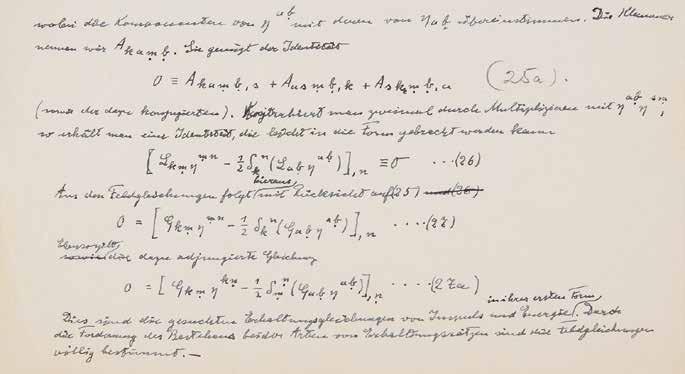 wobei die Komponenten von η^{ab̤} mit denen von η_{ab̤} übereinstimmen. Die Klammer
nennen wir A_{kạmḅ}. Sie genügt der Identität
0 ≡ A_{kạmḅ,s} + A_{ạsmḅ,k} + A_{skṃḅ,a} (25a).
(sowie der dazu konjugierten). Kontrahiert man zweimal durch Multiplizieren mit η^{aḅ} η^{sṃ},
so erhält man eine Identität, die leicht in die Form gebracht werden kann
[L_{kṃ} η^{mn} - 1/2 δ_k^n (L_{aḅ} η^{aḅ})]_{,n} ≡ 0 ...(26)
Aus den Feldgleichungen folgt hieraus, mit Rücksicht auf (25) und (26)
0 = [G_{kṃ} η^{mn} - 1/2 δ_k^n (G_{aḅ} η^{aḅ})]_{,n} ....(27)
Ebenso gilt
sowie die dazu adjungierte Gleichung
0 = [G_{kṃ} η^{kṇ} - 1/2 δ_m^n (G_{aḅ} η^{aḅ})]_{,n} ....(27a)
in ihrer ersten Form.
Dies sind die gesuchten Erhaltungsgleichungen von Impuls und Energie. Durch
die Forderung des Bestehens beider Arten von Erhaltungssätzen sind die Feldgleichungen
völlig bestimmt. —